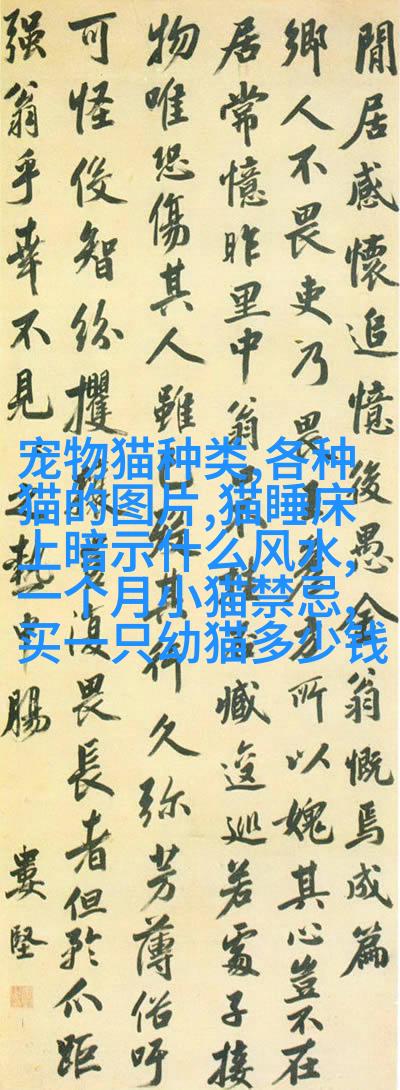 閒居感懷追憶後愚金翁慨焉成篇
鄉人不畏吏乃畏方所以媿其心豈不在
居常憶昨里中翁藏逡巡若處子接
物唯恐傷其人雖其行久弥芳薄俗吁
可怪佼智紛攫復畏長者但矜爪距
强翁乎幸不見熱中腸
婁堅
宠物猫种类,各种
猫的图片,猫睡床
上暗示什么风水,
一个月小猫禁忌,
买一只幼猫多少钱